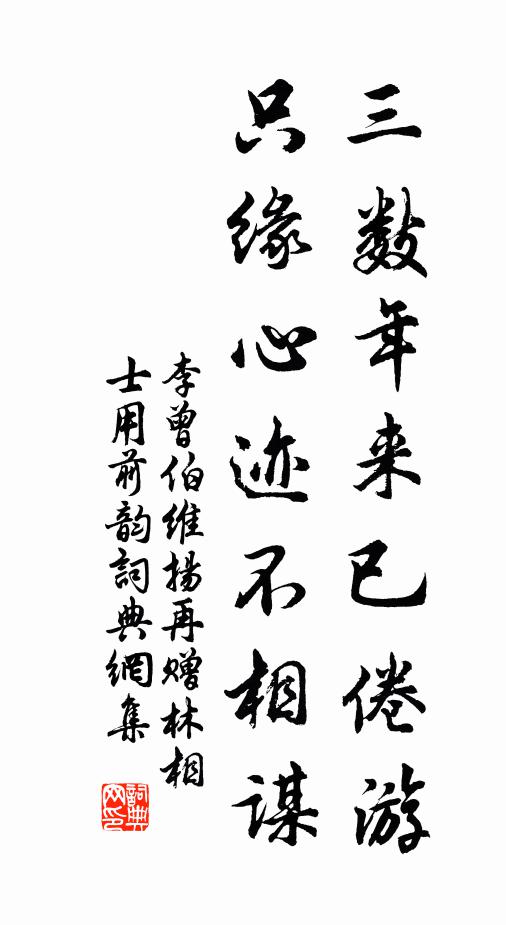 三数年来已倦游
只缘心迹不相谋
李曾伯维揚再赠林相
士用前韵詞典網集
詞典网印